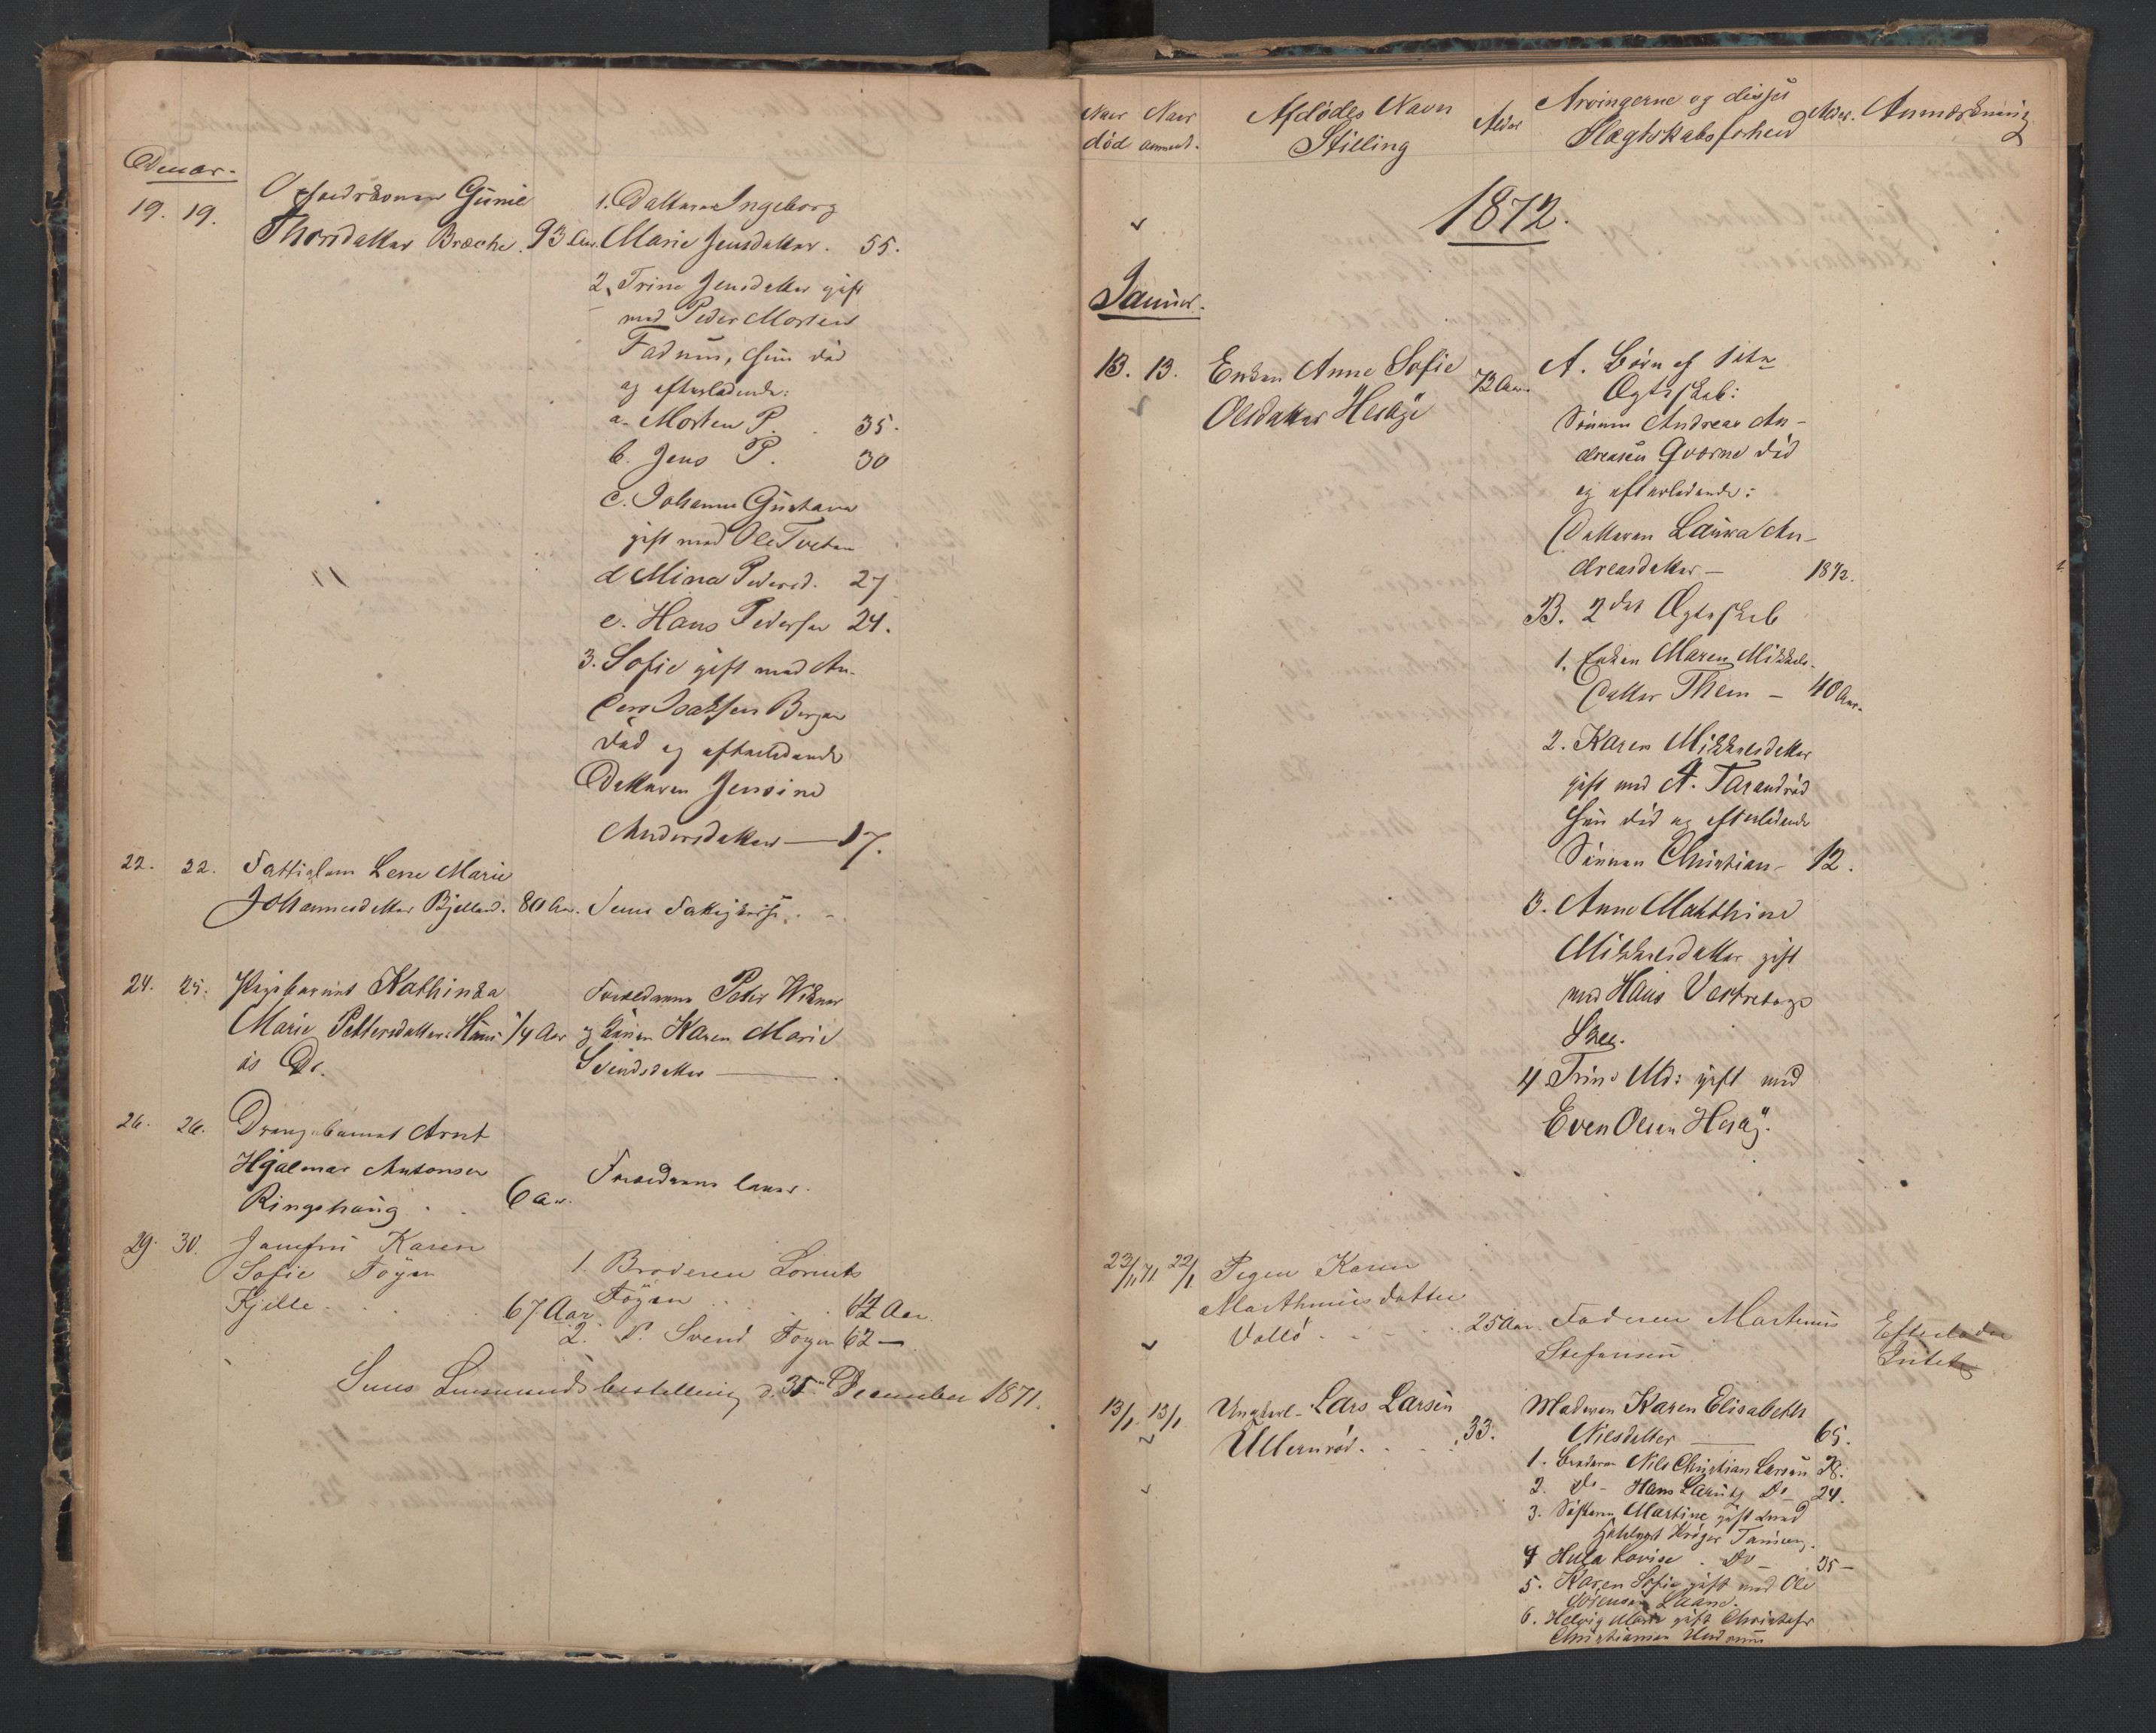 Decbr.
19. 19. Føderkonen Gunie 1. Datteren Ingeborg
Thorsdatter Bræche. 93 Aar. Marie Jensdatter. 55.
2. Trine Jensdatter gift
med Peder Morten
Fadum, hun død
og efterladende:
a. Morten P. 35.
b. Jens P. 30
c. Johanne Gustava
gift med Ole Tveten
d Mina Pedersd. 27
e. Hans Pedersen 24.
3. Sofie gift med An-
ders Isaksen Bergan
død og efterladende
Datteren Jensine
Andersdatter — 17.
22. 22. Fattiglem Lene Marie
Johannesdatter Bjelland. 80 Aar. Sems Fattigkasse.
24. 25. Pigebarnet Kathinka Forældrene Peter
Marie Pettersdatter 1/4 Aar og Karen Marie
ås Dr. Svendsdatter —
26. 26. Drengebarnet Arnt
Hjalmar Antonsen Forældrene lever.
Ringshaug 6 aar.
29. 30. Jomfru Karen 1. Broderen Lorents
Sofie Føyen Føyen 62 Aar.
Kjelle 67 Aar 2. D. Svend Foyen 62 —
Sems Lensmandsbestilling d. 31 December 1871.
Naar Naar Afdødes Navn Alder Arvingerne og disses Alder. Anmærkning
død anmeldt. Stilling Slægtskabsforhold
1872.
Januar.
13. 13. Enken Anne Sofie 72 Aar. A. Børn af 1ste
Olsdatter Hesby Ægteskab:
Sønnen Andreas An-
dreasen Qværne død
og efterladende:
Datteren Laura An-
dreasdatter — 1872.
B. 2det Ægteskab
1. Enken Maren Mikkels-
datter Them — 40 Aar.
2. Karen Mikkelsdatter
gift med A. Tarandrød
hun død og efterladende
Sønnen Christian — 12.
3. Anne Mathine
Mikkelsdatter gift
med Hans
Skee.
4 Trine Md: gift med
Even Olsen Hesby.
23/11 71 22/1 Pigen Karen
Marthinusdatter
Vallø 25 Aar. Faderen Martinus Efterlader
Stefansen Intet
13/1 13/1 Ungkarl Lars Larsen Moderen Karen Elisabeth
Ullernrød. 33. Nilsdatter — 65.
1. Broderen Nils Christian Larsen 28.
2. Do — Hans Laurits Do 24.
3. Søsteren Martine gift med
Krøger Tønsberg.
4 Hulda Lovise Do — 35 —
5. Karen Sofie gift med Ole
Sørensen
6. Helvig Marie gift Christofer
Christiansen Undrum